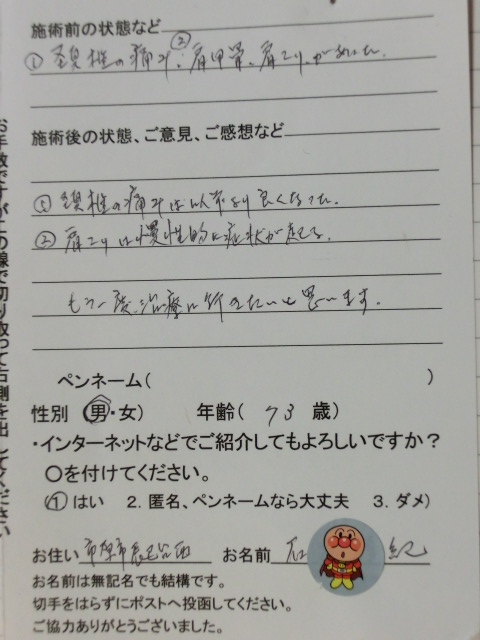 施術前の状態など
① 頚椎の痛み、②肩甲骨、肩こりがあった。
施術後の状態、ご意見、ご感想など
① 頚椎の痛みは以前より良くなった。
② 肩こりは慢性的に症状が起る。
もう一度、治療に行きたいと思います。
ペンネーム( )
性別 (男・女) 年齢( 73 歳)
・インターネットなどでご紹介してもよろしいですか?
○を付けてください。
(① はい 2. 匿名、ペンネームなら大丈夫 3. ダメ)
お住い 市原市辰巳台西 お名前 石 紀
お名前は無記名でも結構です。
切手をはらずにポストへ投函してください。
ご協力ありがとうございました。
お手数ですがこの線で切り取って右側を出してください